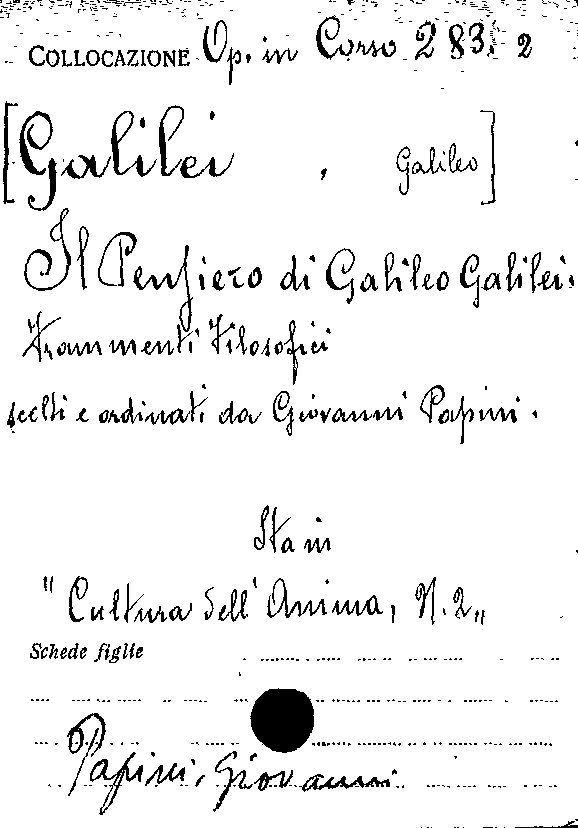 COLLOCAZIONE Op. in Corso 283. 2
[Galilei , Galileo]
Il Pensiero di Galileo Galilei.
Frammenti Filosofici
scelti e ordinati da Giovanni Papini.
Sta in
"Cultura dell'Anima, N. 2„
Schede figlie
Papini, Giovanni